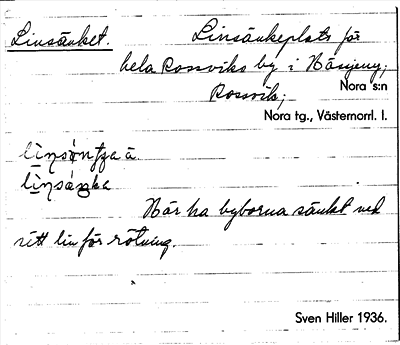 Linsänket. Linsänkeplats för
hela Rossviks by i Näsjeny;
Rossvik; Nora s:n
Nora tg., Västernorrl. l.
Här ha byborna sänkt ned
sitt lin för rötning.
Sven Hiller 1936.